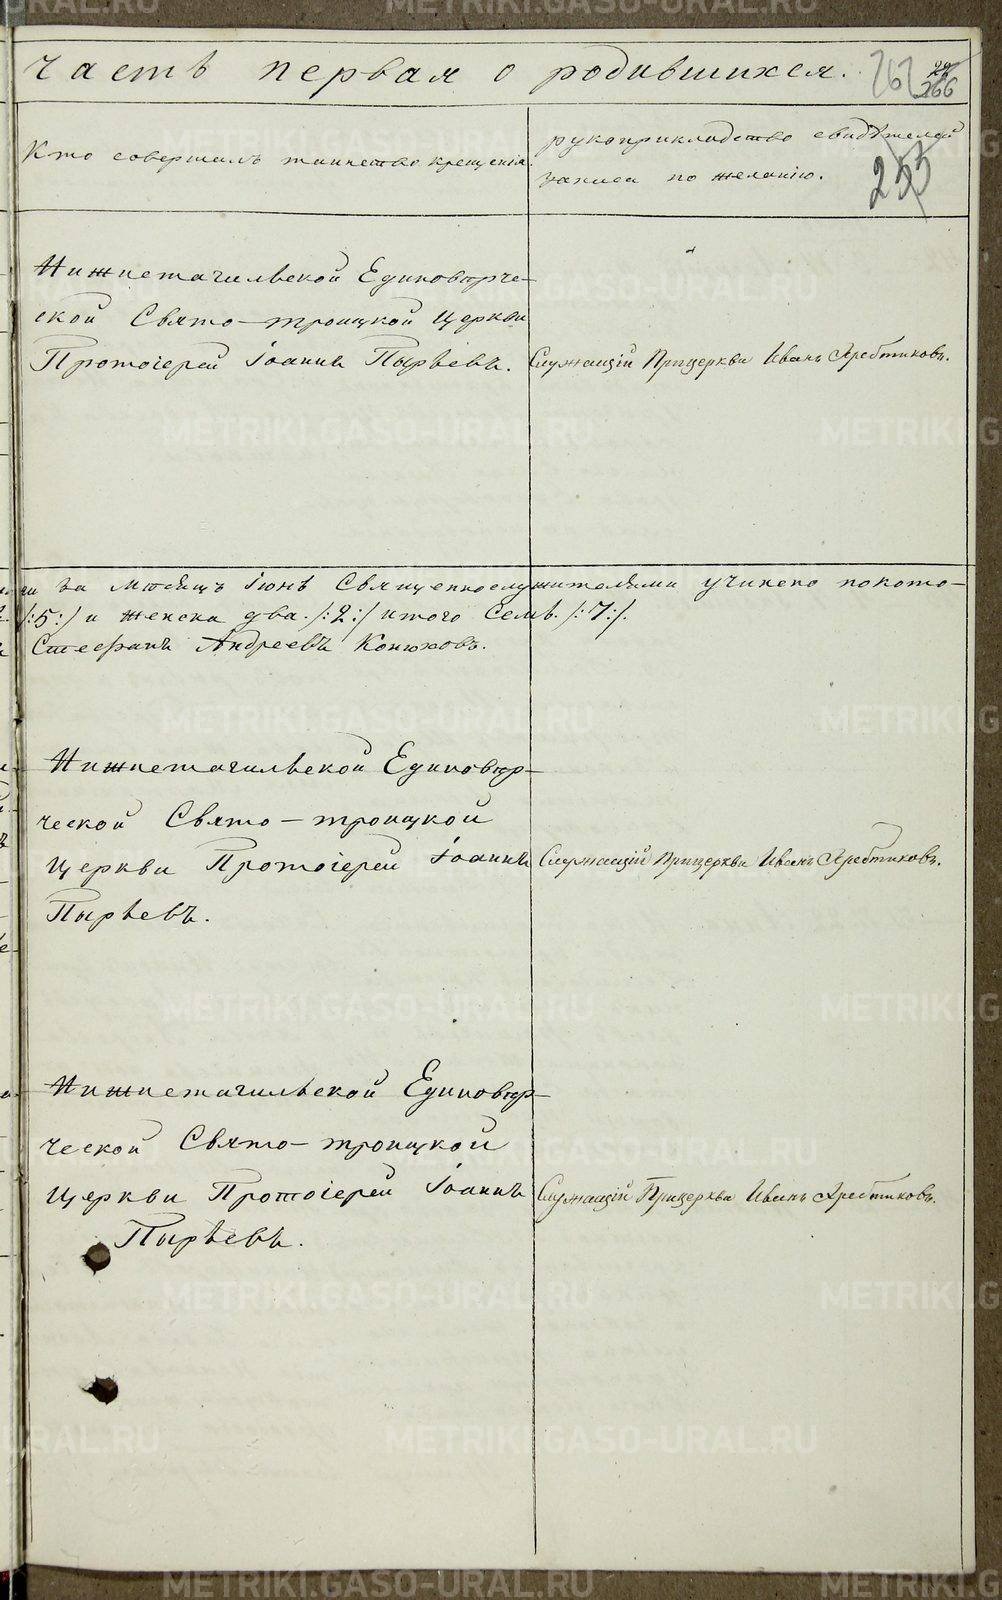 часть первая о родившихся.
262
28
266
Кто совершалъ таинство крещенія.
рукоприкладство свидѣтелей
записа по желанію.
233
Нижнетагильской Единовѣрче-
ской Свято-троицкой Церкви
Протоіерей Іоаннъ Пырьевъ.
Служащій Прицеркви Иванъ
за мѣсяцъ Іюнь Священнослужителями учинено покото-
/:5:/ и женска два. /:2:/ итого Семь. /:7:/.
Стефанъ Андреевъ Конюховъ.
Нижнетагильской Единовѣр-
ческой Свято-троицкой
Церкви Протоіерей Іоаннъ
Пырьевъ.
Служащій Прицеркви Иванъ
Нижнетагильской Единовѣр-
ческой Свято-троицкой
Церкви Протоіерей Іоаннъ
Пырьевъ.
Служащій Прицеркви Иванъ
METRIKI.GASO-URAL.RU